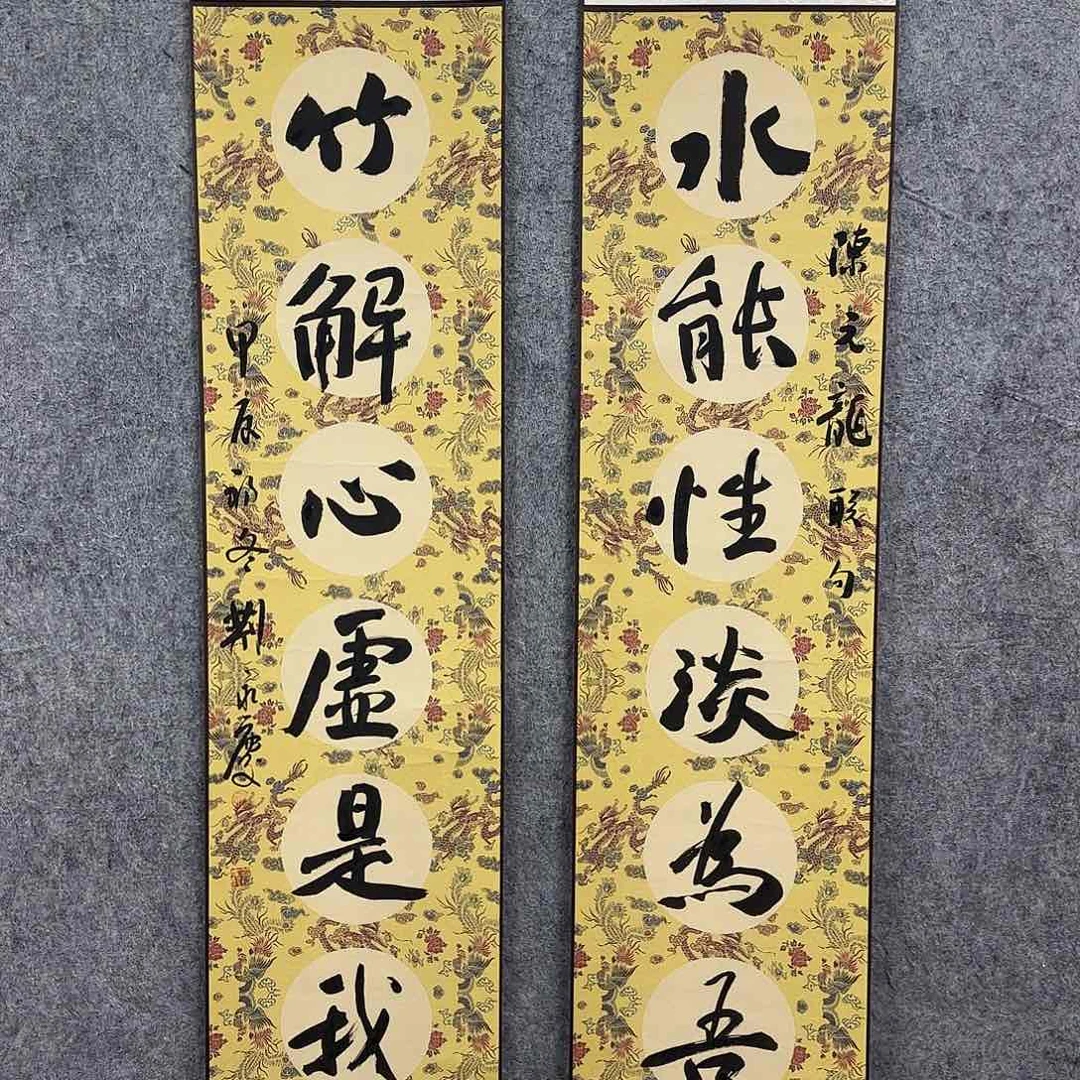 水能性淡為吾
陳元龍联句
竹解心虛是我
甲辰初冬荆永慶